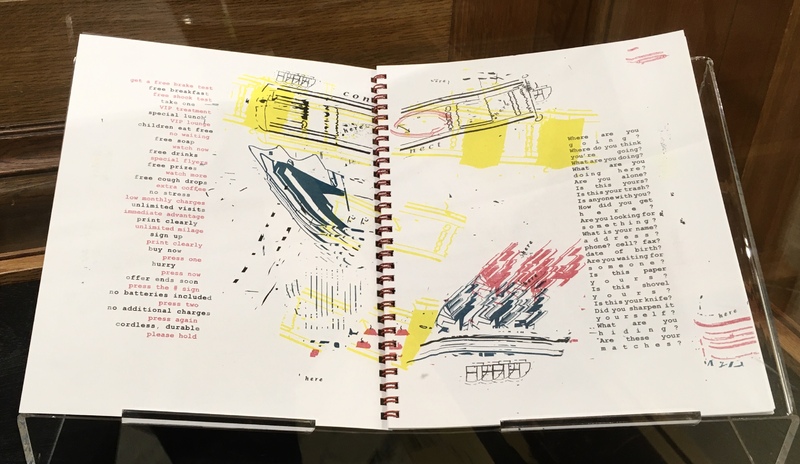 get a free brake test
free breakfast
free shock test
take one
VIP treatment
special lunch
VIP lounge
children eat free
no waiting
free soap
watch now
free drinks
special flyers
free prizes
watch more
free cough drops
extra coffee
no stress
low monthly charges
unlimited visits
immediate advantage
print clearly
unlimited milage
sign up
print clearly
buy now
press one
hurry
press now
offer ends soon
press the # sign
no batteries included
press two
no additional charges
press again
cordless, durable
please hold
con
here
here
nect
Where are you
going?
Where do you think
you're going?
What are you doing?
What are you
doing here?
Are you alone?
Is this yours?
Is this your trash?
Is anyone with you?
How did you get
here?
Are you looking for
something?
What is your name?
address?
phone? cell? fax?
date of birth?
Are you waiting for
someone?
Is this paper
yours?
Is this shovel
yours?
Is this your knife?
Did you sharpen it
yourself?
What are you
hiding?
Are these your
matches?
here